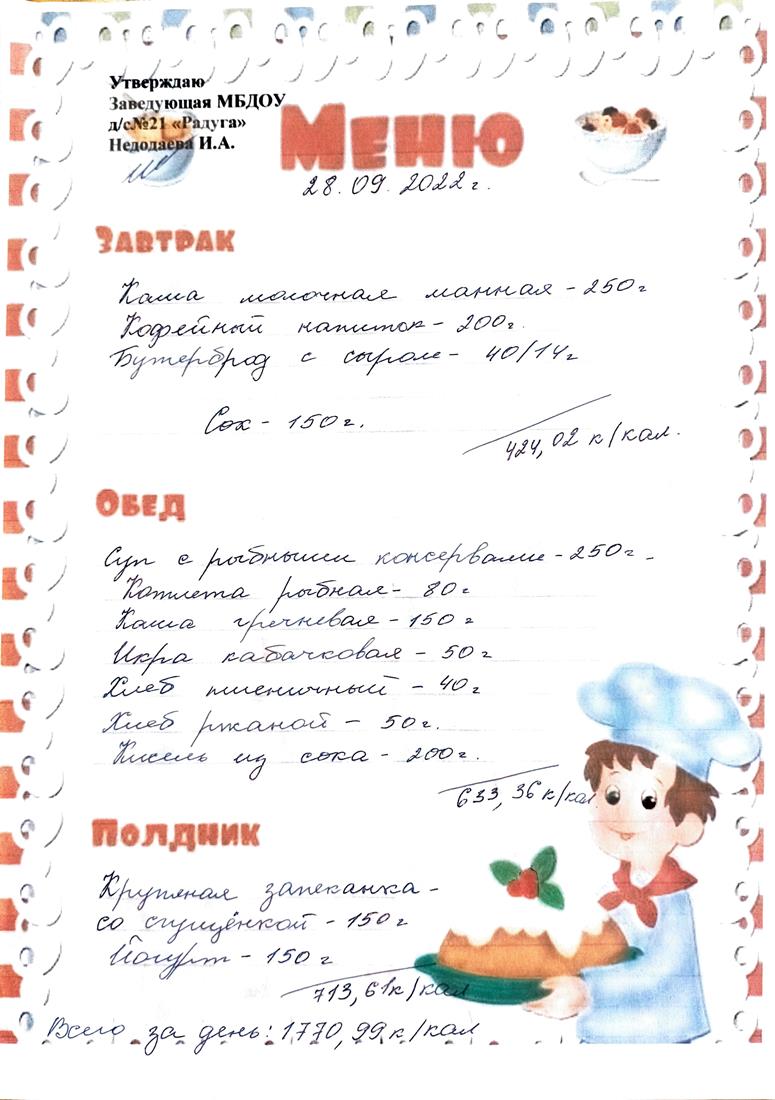 Утверждаю
Заведующая МБДОУ
д/с№21 «Радуга»
Недодаева И.А.
Меню
28.09.2022г.
Завтрак
Каша молочная манная - 250г
Кофейный напиток - 200г.
Бутерброд с сыром - 40/14г
Сок - 150г.
424,02 к/кал.
Обед
Суп с рыбными консервами - 250г -
Котлета рыбная - 80г
Каша гречневая - 150г
Икра кабачковая - 50г
Хлеб пшеничный - 40г
Хлеб ржаной - 50г.
Кисель из сока - 200г.
633,36 к/кал.
Полдник
Крупяная запеканка -
со сгущёнкой - 150г
Йогурт - 150г
713,61к/кал
Всего за день: 1770,99к/кал